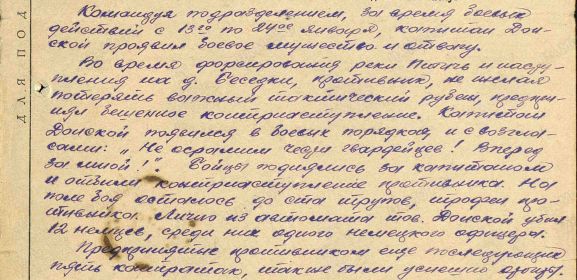 Командуя подразделением, за время боевых
действий с 13го по 24ое января, капитан Дон-
ской проявил боевое мужество и отвагу.
Во время форсирования реки Птичь и насту-
пления на д. Сеседки, противник, не желая
потерять важный тактический рубеж, предпри-
нял бешенное контрнаступление. Капитан
Донской появился в боевых порядках и с возгла-
сами: „Не осрамим чести гвардейцев! Вперед
за мной!". Бойцы поднялись за капитаном
и отбили контрнаступление противника. На
поле боя осталось до ста трупов, трофеи про-
тивника. Лично из автомата тов. Донской убил
12 немцев, среди них одного немецкого офицера.
Предпринятые противником еще последующих
пять контратак, также были успешно
ДЛЯ ПОД